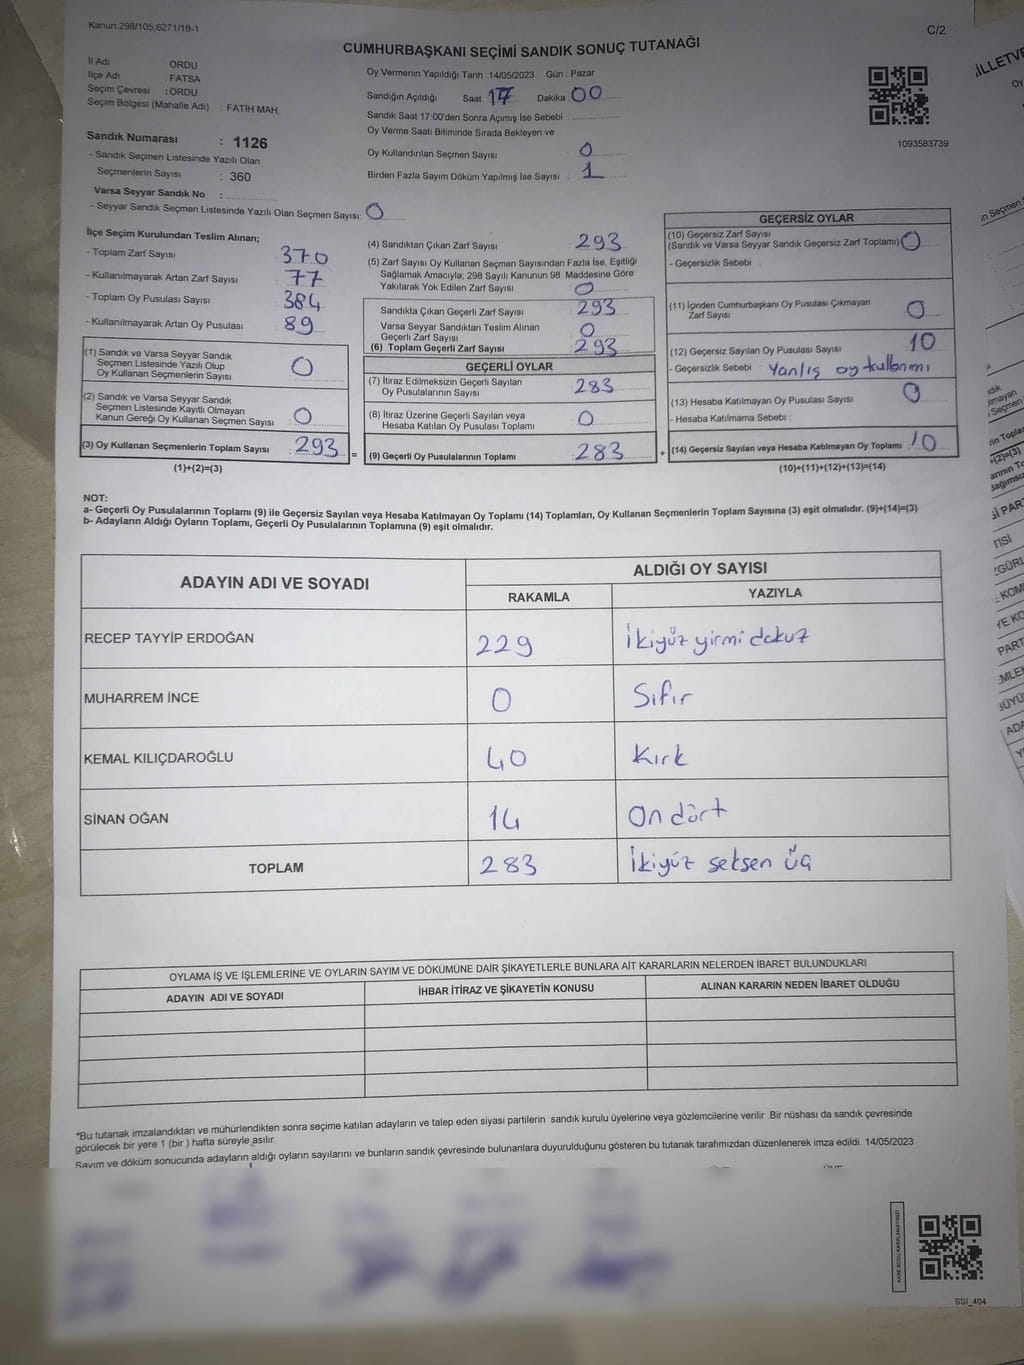 Kanun 298/105,6271/16-1
C/2
CUMHURBAŞKANI SEÇİMİ SANDIK SONUÇ TUTANAĞI
İl Adı ORDU
İlçe Adı : FATSA
Seçim Çevresi : ORDU
Seçim Bölgesi (Mahalle Adı) : FATİH MAH.
Sandık Numarası : 1126
- Sandık Seçmen Listesinde Yazılı Olan
Seçmenlerin Sayısı : 360
Varsa Seyyar Sandık No :
- Seyyar Sandık Seçmen Listesinde Yazılı Olan Seçmen Sayısı: 0
Oy Vermenin Yapıldığı Tarih : 14/05/2023 Gün : Pazar
Sandığın Açıldığı Saat 17 Dakika 00
Sandık Saat 17:00'den Sonra Açımış İse Sebebi
Oy Verme Saati Bitiminde Sırada Bekleyen ve
Oy Kullandırılan Seçmen Sayısı : 0
Birden Fazla Sayım Döküm Yapılmış İse Sayısı : 1
1093583739
İlçe Seçim Kurulundan Teslim Alınan;
- Toplam Zarf Sayısı : 370
- Kullanılmayarak Artan Zarf Sayısı : 77
- Toplam Oy Pusulası Sayısı : 384
- Kullanılmayarak Artan Oy Pusulası : 89
(1) Sandık ve Varsa Seyyar Sandık
Seçmen Listesinde Yazılı Olup
Oy Kullanan Seçmenlerin Sayısı : 0
(2) Sandık ve Varsa Seyyar Sandık
Seçmen Listesinde Kayıtlı Olmayan
Kanun Gereği Oy Kullanan Seçmen Sayısı : 0
(3) Oy Kullanan Seçmenlerin Toplam Sayısı : 293
(1)+(2)=(3)
=
(4) Sandıktan Çıkan Zarf Sayısı : 293
(5) Zarf Sayısı Oy Kullanan Seçmen Sayısından Fazla İse, Eşitliği
Sağlamak Amacıyla; 298 Sayılı Kanunun 98. Maddesine Göre
Yakılarak Yok Edilen Zarf Sayısı : 0
Sandıkta Çıkan Geçerli Zarf Sayısı : 293
Varsa Seyyar Sandıktan Teslim Alınan
Geçerli Zarf Sayısı : 0
(6) Toplam Geçerli Zarf Sayısı : 293
GEÇERLİ OYLAR
(7) İtiraz Edilmeksizin Geçerli Sayılan
Oy Pusulalarının Sayısı : 283
(8) İtiraz Üzerine Geçerli Sayılan veya
Hesaba Katılan Oy Pusulası Toplamı : 0
(9) Geçerli Oy Pusulalarının Toplamı : 283
+
GEÇERSİZ OYLAR
(10) Geçersiz Zarf Sayısı
(Sandık ve Varsa Seyyar Sandık Geçersiz Zarf Toplamı) : 0
- Geçersizlik Sebebi :
(11) İçinden Cumhurbaşkanı Oy Pusulası Çıkmayan
Zarf Sayısı : 0
(12) Geçersiz Sayılan Oy Pusulası Sayısı : 10
- Geçersizlik Sebebi : Yanlış oy kullanımı
(13) Hesaba Katılmayan Oy Pusulası Sayısı : 0
- Hesaba Katılmama Sebebi :
(14) Geçersiz Sayılan veya Hesaba Katılmayan Oy Toplamı : 10
(10)+(11)+(12)+(13)=(14)
NOT:
a- Geçerli Oy Pusulalarının Toplamı (9) ile Geçersiz Sayılan veya Hesaba Katılmayan Oy Toplamı (14) Toplamları, Oy Kullanan Seçmenlerin Toplam Sayısına (3) eşit olmalıdır. (9)+(14)=(3)
b- Adayların Aldığı Oyların Toplamı, Geçerli Oy Pusulalarının Toplamına (9) eşit olmalıdır.
ADAYIN ADI VE SOYADI
ALDIĞI OY SAYISI
RAKAMLA YAZIYLA
RECEP TAYYİP ERDOĞAN 229 İkiyüz yirmi dokuz
MUHARREM İNCE 0 Sıfır
KEMAL KILIÇDAROĞLU 40 Kırk
SİNAN OĞAN 14 On dört
TOPLAM 283 İkiyüz seksen üç
OYLAMA İŞ VE İŞLEMLERİNE VE OYLARIN SAYIM VE DÖKÜMÜNE DAİR ŞİKAYETLERLE BUNLARA AİT KARARLARIN NELERDEN İBARET BULUNDUKLARI
ADAYIN ADI VE SOYADI İHBAR İTİRAZ VE ŞİKAYETİN KONUSU ALINAN KARARIN NEDEN İBARET OLDUĞU
*Bu tutanak imzalandıktan ve mühürlendikten sonra seçime katılan adayların ve talep eden siyasi partilerin sandık kurulu üyelerine veya gözlemcilerine verilir .Bir nüshası da sandık çevresinde
görülecek bir yere 1 (bir ) hafta süreyle asılır.
Sayım ve döküm sonucunda adayların aldığı oyların sayılarını ve bunların sandık çevresinde bulunanlara duyurulduğunu gösteren bu tutanak tarafımızdan düzenlenerek imza edildi. 14/05/2023
SSI_404